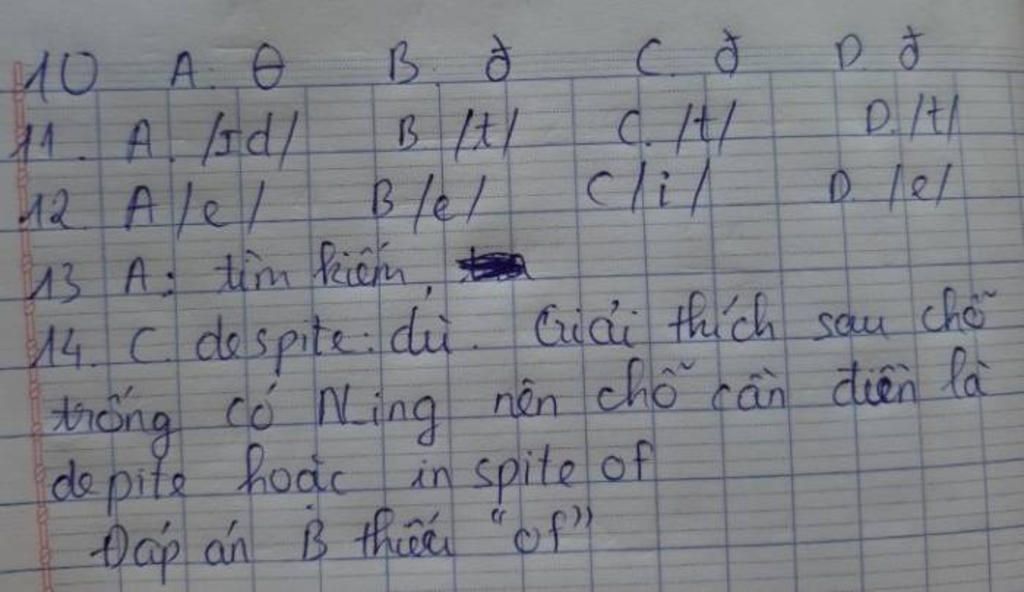 10 A. θ B. ð C. ð D. ð
11. A. /ɪd/ B /t/ C. /t/ D. /t/
12 A /e/ B /e/ C /i/ D. /e/
13 A: tìm kiếm,
14. C. despite: dù. Giải thích sau chỗ
trống có N/ing nên chỗ cần điền là
depite hoặc in spite of
Đáp án B thiếu "of"